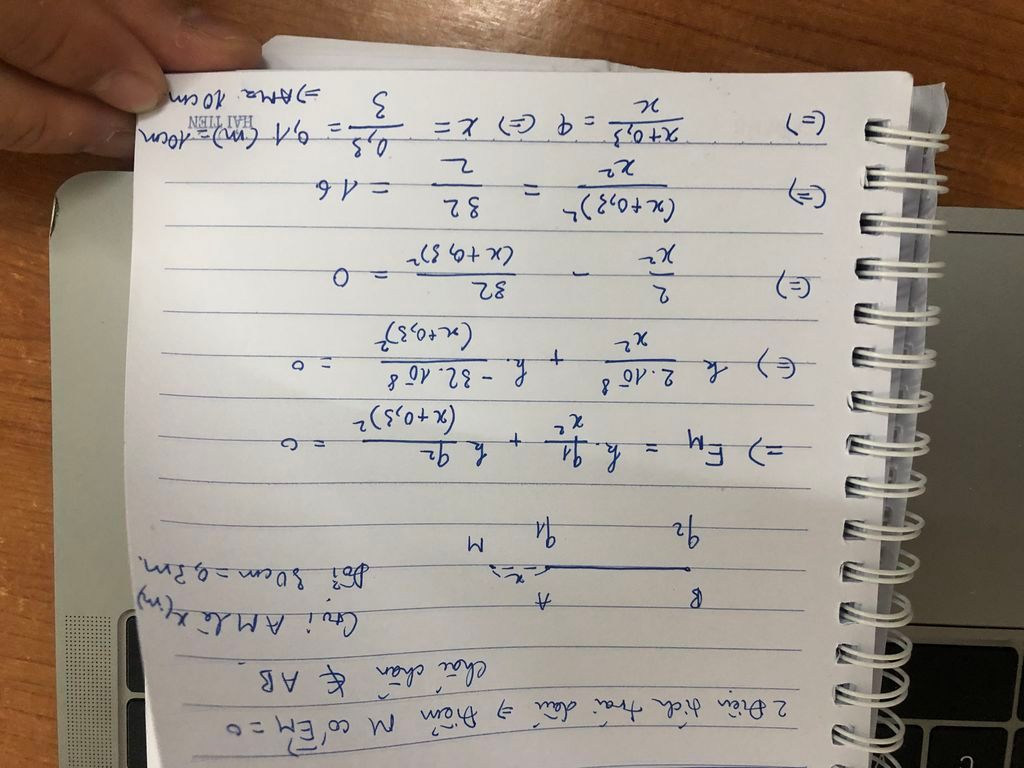 2 Điện tích trái dấu => Điểm M có E⃗M = 0
chắc chắn ∉ AB.
Gọi AM là x(m)
Đổi 30cm = 0,3m.
B A
x
q2 q1 M
=> EM = k. q1/x² + k q2/(x+0,3)² = 0
(=) k 2.10⁻⁸/x² + k. -32.10⁻⁸/(x+0,3)² = 0
(=) 2/x² - 32/(x+0,3)² = 0
(=) (x+0,3)²/x² = 32/2 = 16
(=) x+0,3/x = 4 (=) x = 0,3/3 = 0,1 (m) = 10cm
=) AM = 10cm
HẢI TIẾN